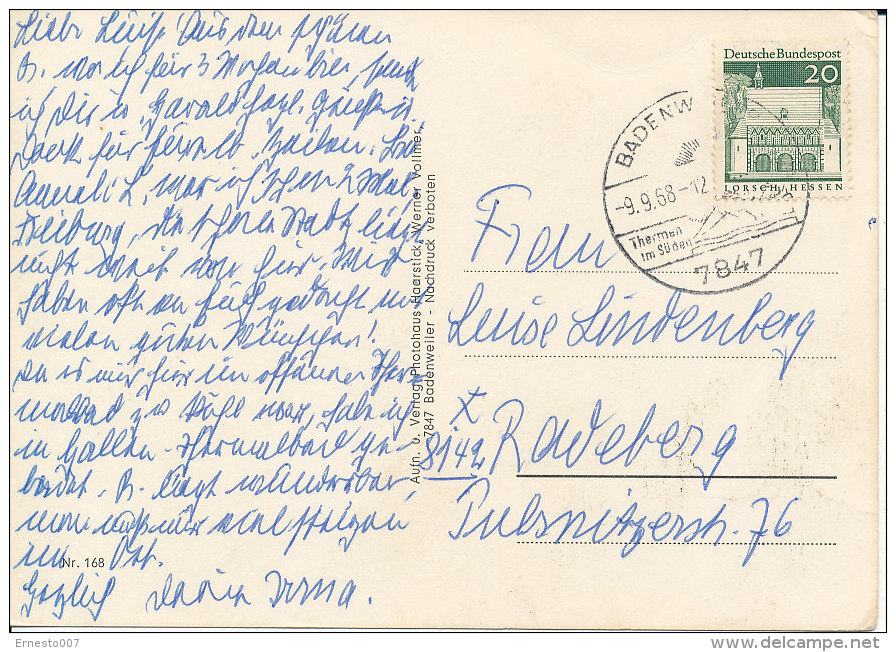 Liebe Luise! Aus dem schönen
B. wo ich für 3 Wochen bin, send
ich Dir u. Harald herzl. Grüße u.
Dank für Eure lb. Zeilen. Bei
Anneli L. war ich schon 2 Mal
Freiburg, die schöne Stadt liegt
nicht weit von hier. Wir
haben oft an Euch gedacht mit
vielen guten Wünschen!
Da es mir hier im offenen Ther
malbad zu kühl war, habe ich
im Hallen-Thermalbad ge
badet. B. liegt wunderbar,
man muß nur viel steigen
im Ort.
Herzlich Deine Irma.
Nr. 168
Aufn. u. Verlag: Photohaus Haerstick, Werner Vollmer,
7847 Badenweiler - Nachdruck verboten
Deutsche Bundespost
20
LORSCH/HESSEN
BADENW
-9.9.68-12
Thermen
im Süden
7847
Frau
Luise Lindenberg
x
8142 Radeberg
Pulsnitzerstr. 76
Ernesto007
www.delcampe.net